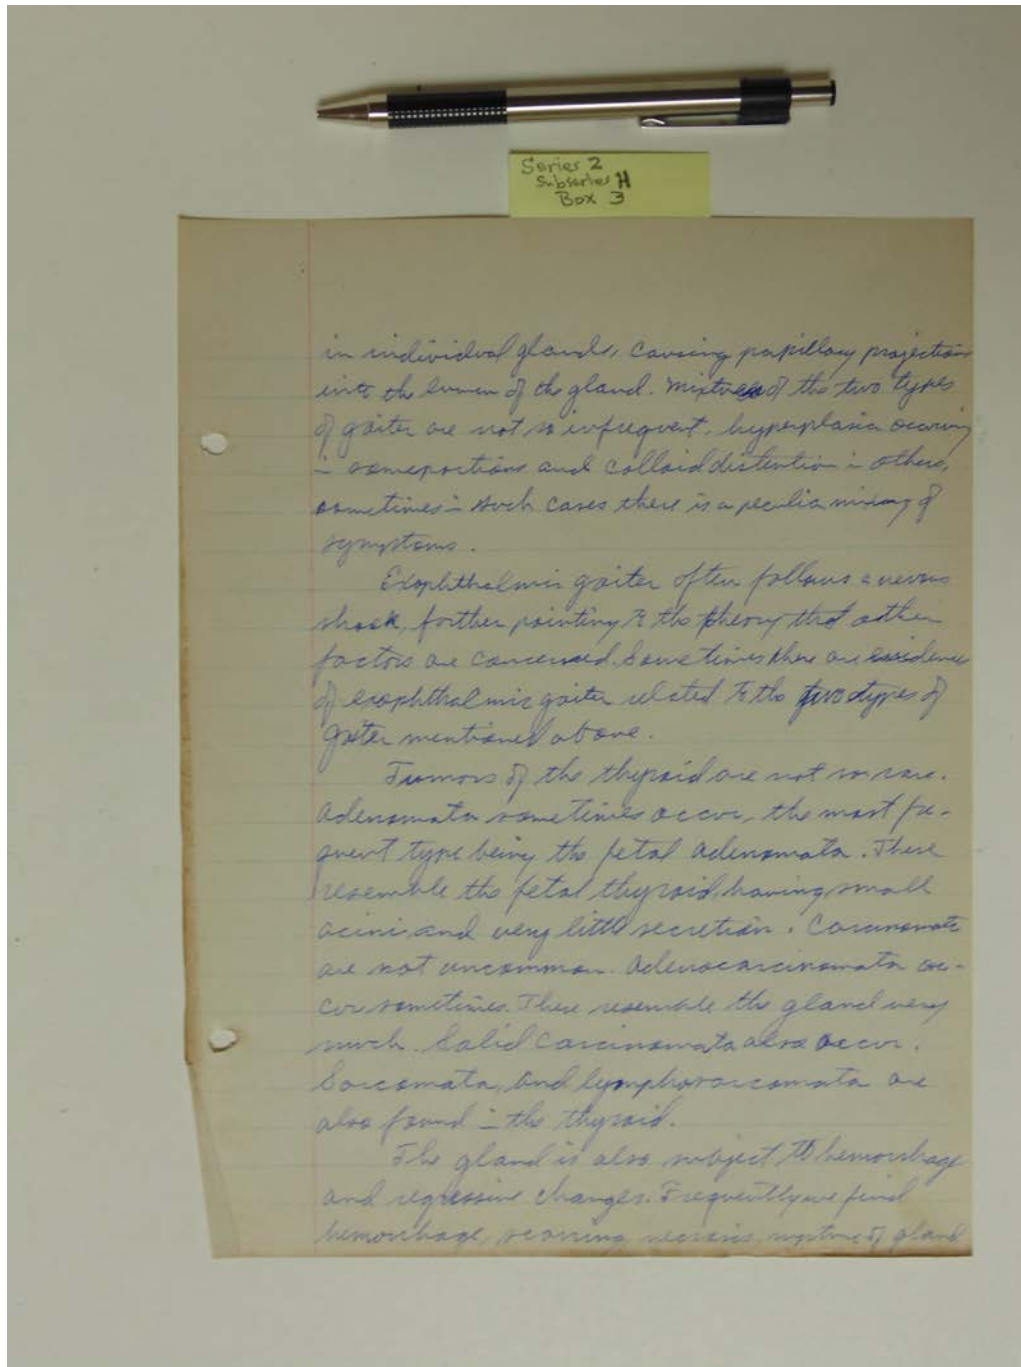 Series 2
Subseries H
Box 3
in individual glands, causing papillary projections
into the lumen of the gland. Mixtures of the two types
of goiter are not so infrequent, hyperplasia occuring
in some portions and colloid distention in others,
sometimes in such cases there is a peculiar mixing of
symptoms.
Exophthalmic goiter often follows a nervous
shock, further pointing to the theory that other
factors are concerned. Sometimes there are evidences
of exophthalmic goiter related to the two types of
goiter mentioned above.
Tumors of the thyroid are not so rare.
Adenomata sometimes occur, the most fre-
quent type being the fetal adenomata. These
resemble the fetal thyroid, having small
acini and very little secretion. Carcinomata
are not uncommon. Adenocarcinomata oc-
cur sometimes. These resemble the gland very
much. Solid carcinomata also occur.
Sarcomata, and lymphosarcomata are
also found in the thyroid.
The gland is also subject to hemorrhage
and regressive changes. Frequently we find
hemorrhage, scarring, necrosis, rupture of gland